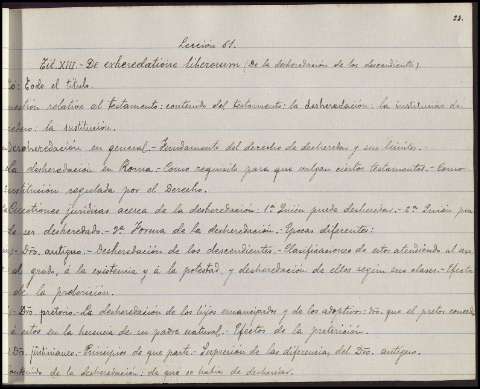 23.
Lección 61.
Tít. XIII.- De exheredatione liberorum (De la desheredación de los descendientes)
Todo el título.
relativa al testamento: contenido del testamento: la desheredación: la institución de
: la institución.
Desheredación en general.- Fundamento del derecho de desheredar y sus límites.
La desheredación en Roma.- Como requisito para que valgan ciertos testamentos.- Como
institución regulada por el Derecho.
Cuestiones jurídicas acerca de la desheredación: 1ª Quién puede desheredar.- 2ª Quién pue
de ser desheredado.- 3ª Forma de la desheredación.- Épocas diferentes:
Dro. antiguo.- Desheredación de los descendientes.- Clasificaciones de estos atendiendo al sexo,
de grado, á la existencia y á la potestad, y desheredación de ellos según sus clases.- Efectos
de la preterición.
Dro. pretorio.- La desheredación de los hijos emancipados y de los adoptivos: dro. que el pretor concede
á estos en la herencia de su padre natural.- Efectos de la preterición.
Dro. justinianeo.- Principios de que parte.- Supresión de las diferencias del Dro. antiguo.
de la desheredación: de que se habían de desheredar.